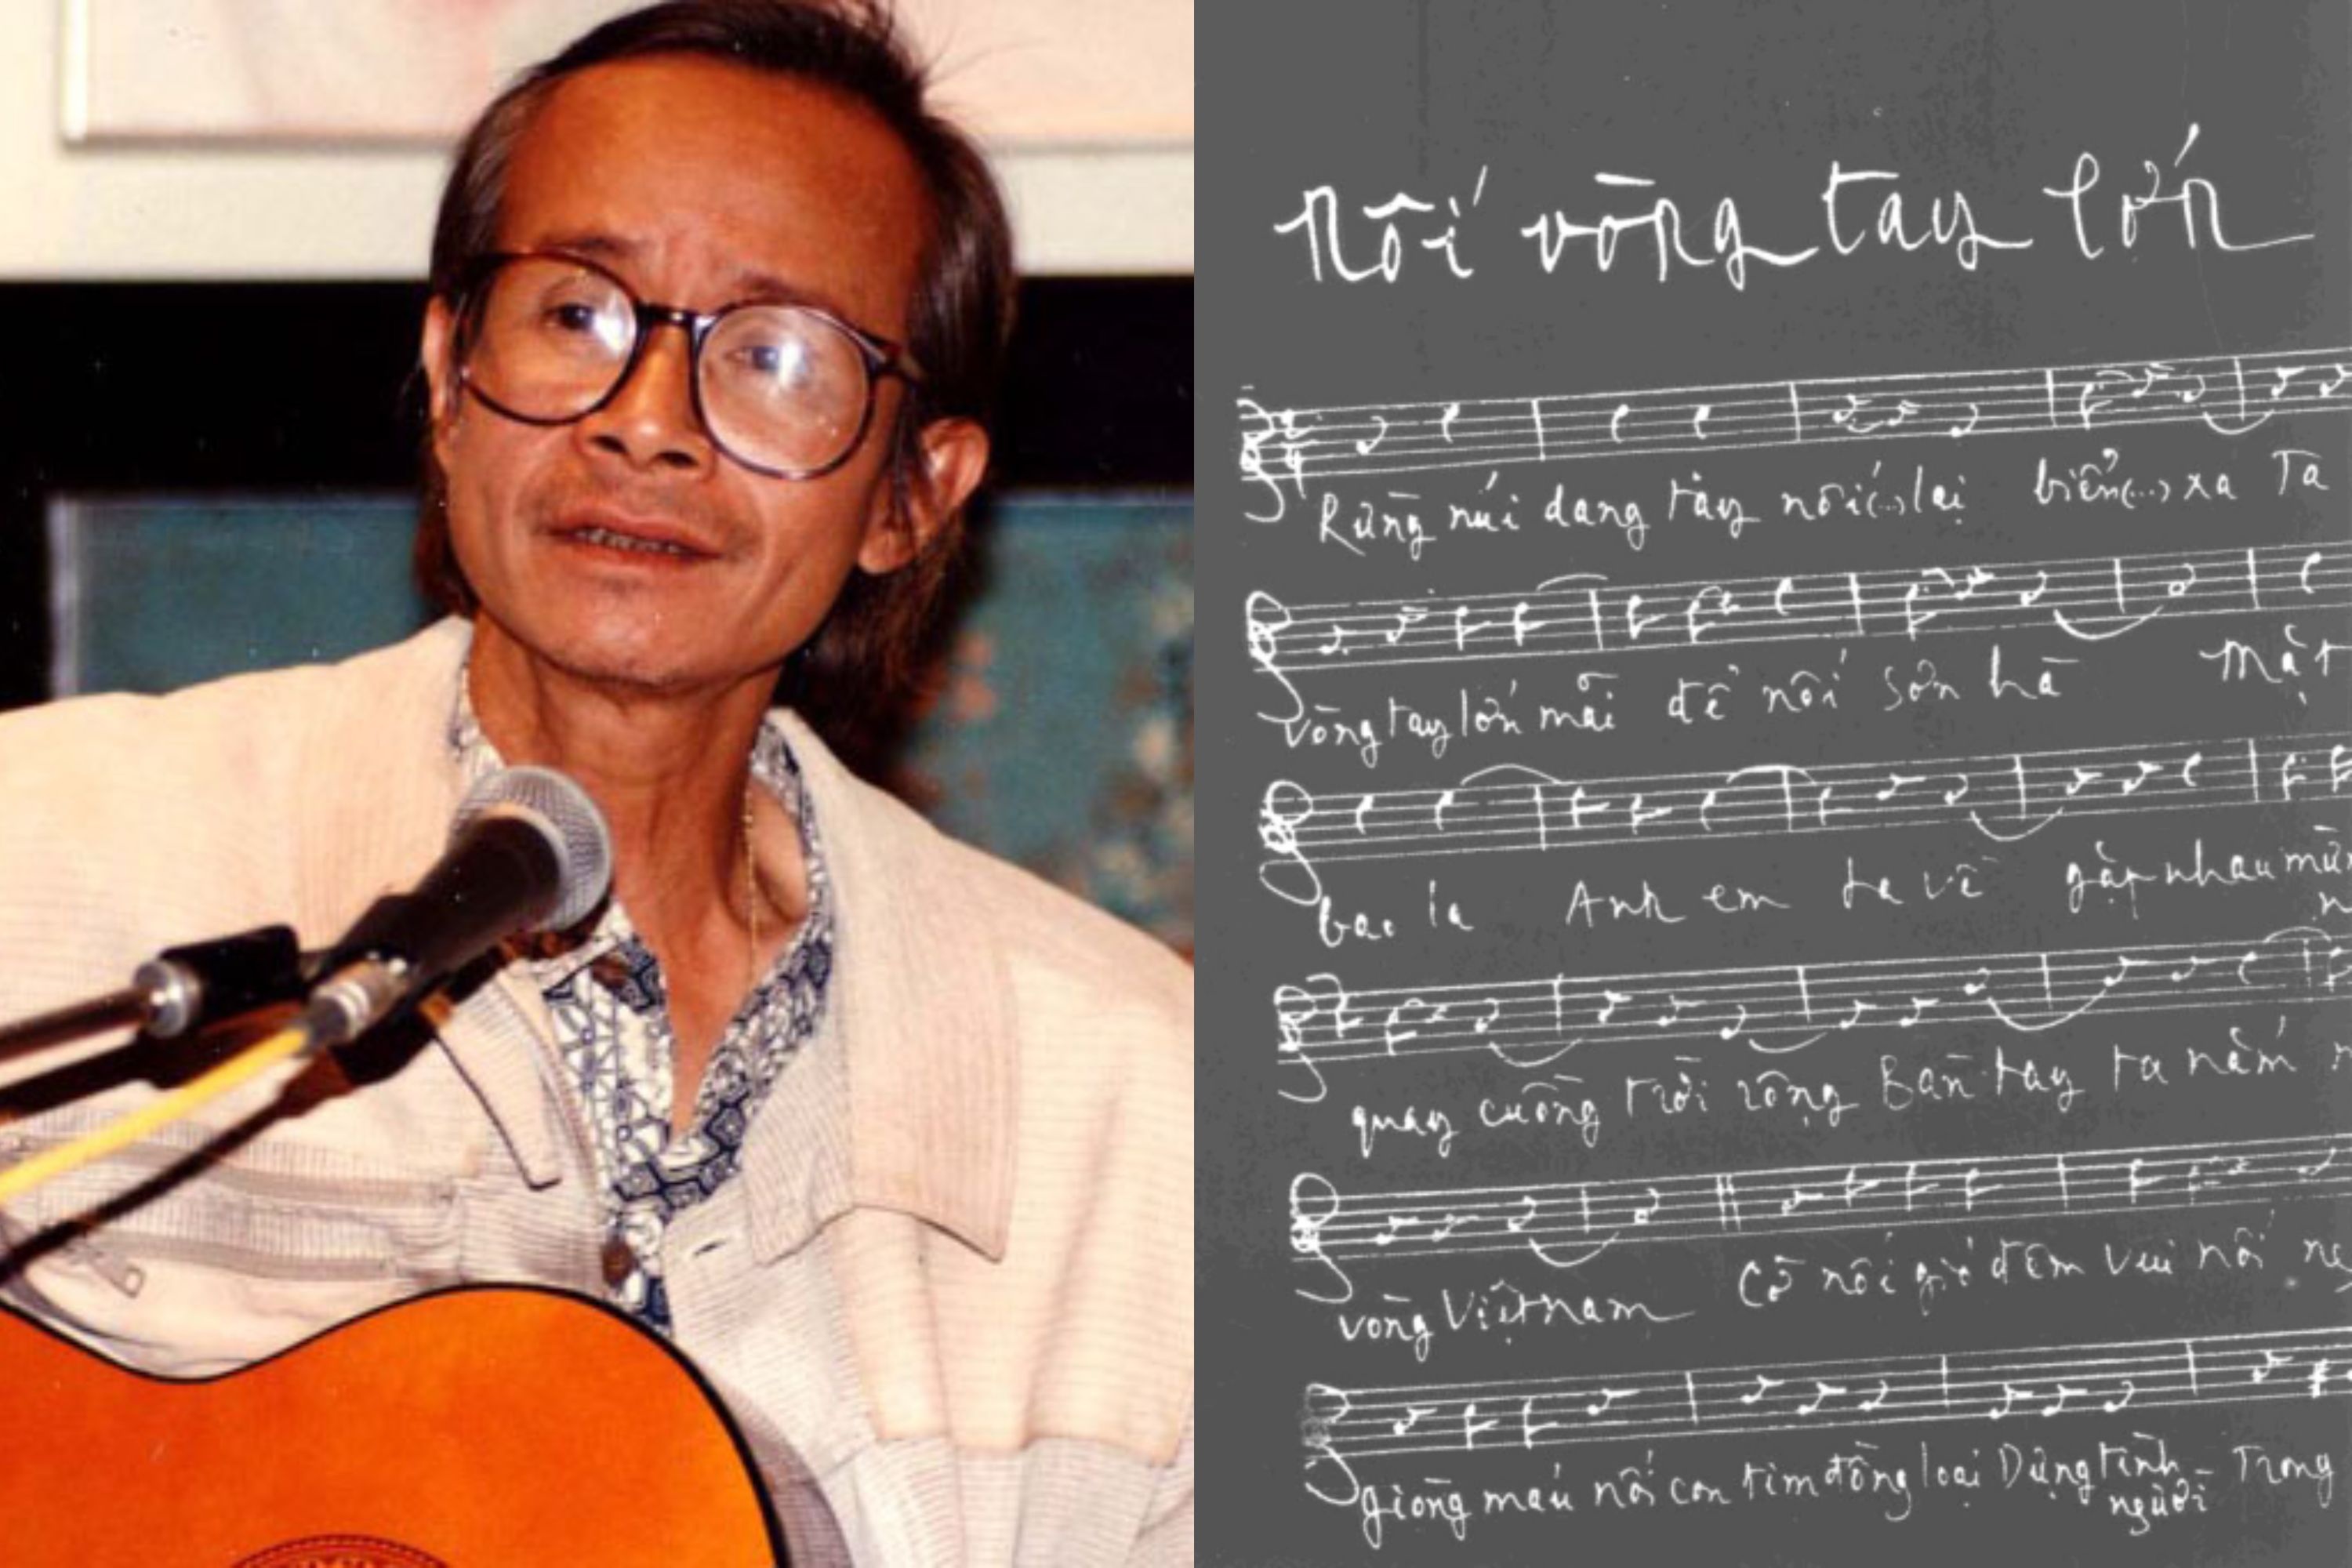 Nối vòng tay lớn
Rừng núi dang tay nối(...)lại biển(...)xa Ta
vòng tay lớn mãi để nối sơn hà Mặt
bao la Anh em ta về gặp nhau
quay cuồng trời rộng Bàn tay ta nắm
vòng Việtnam Cờ nối gió đêm vui nối
giòng máu nối con tim đồng loại Dựng tình Trong
người